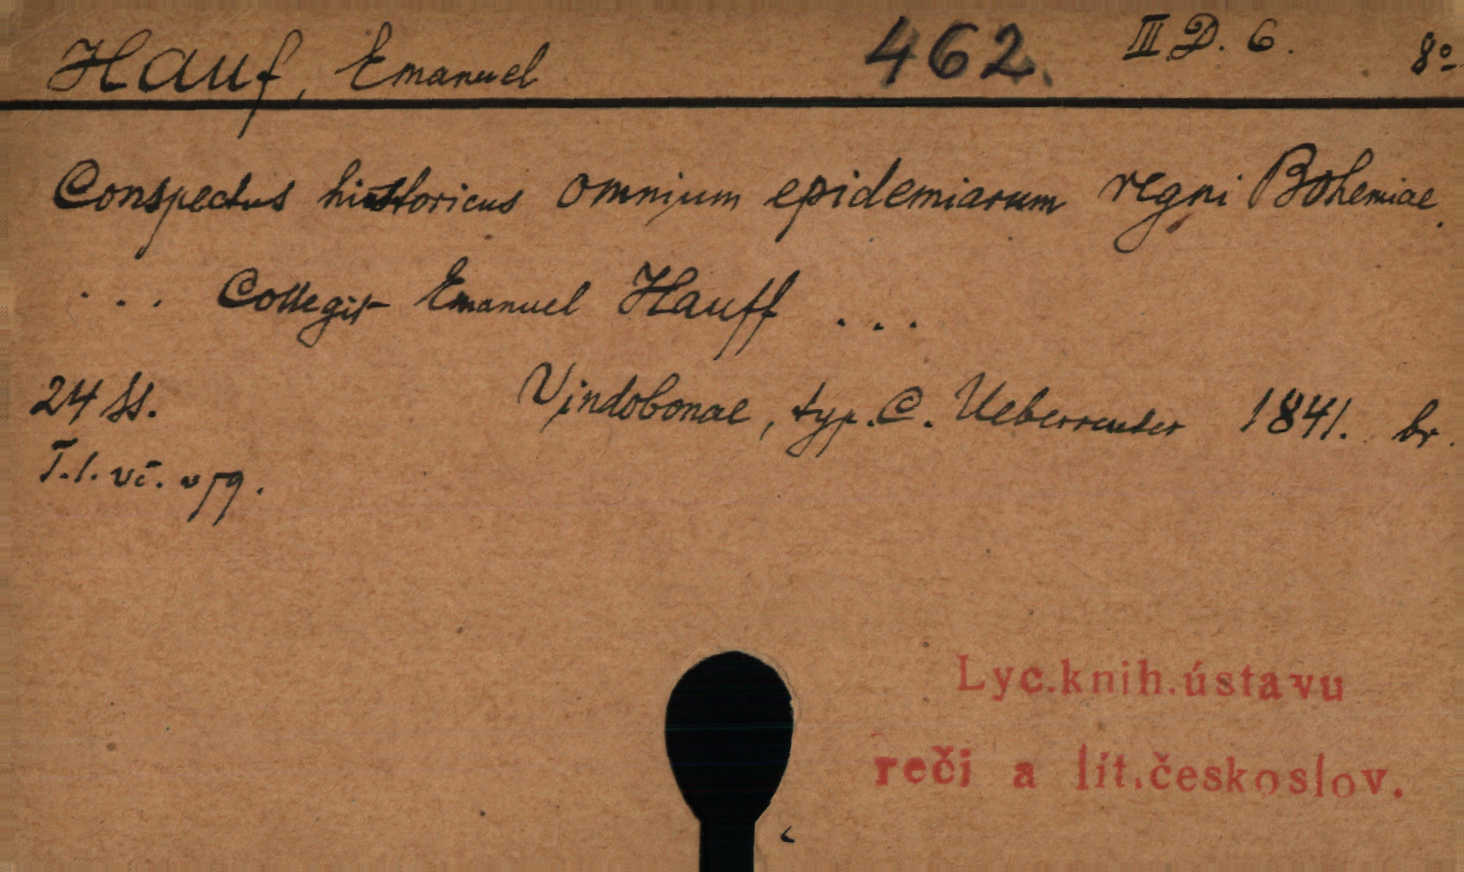 Hauf, Emanuel 462. III D. 6. 8º
Conspectus historicus omnium epidemiarum regni Bohemiae.
... Collegit Emanuel Hauff ...
24 ss. Vindobonae, typ. C. Ueberreuter 1841. br.
T. l. vč.
Lyc.knih.ústavu
reči a lit.českoslov.